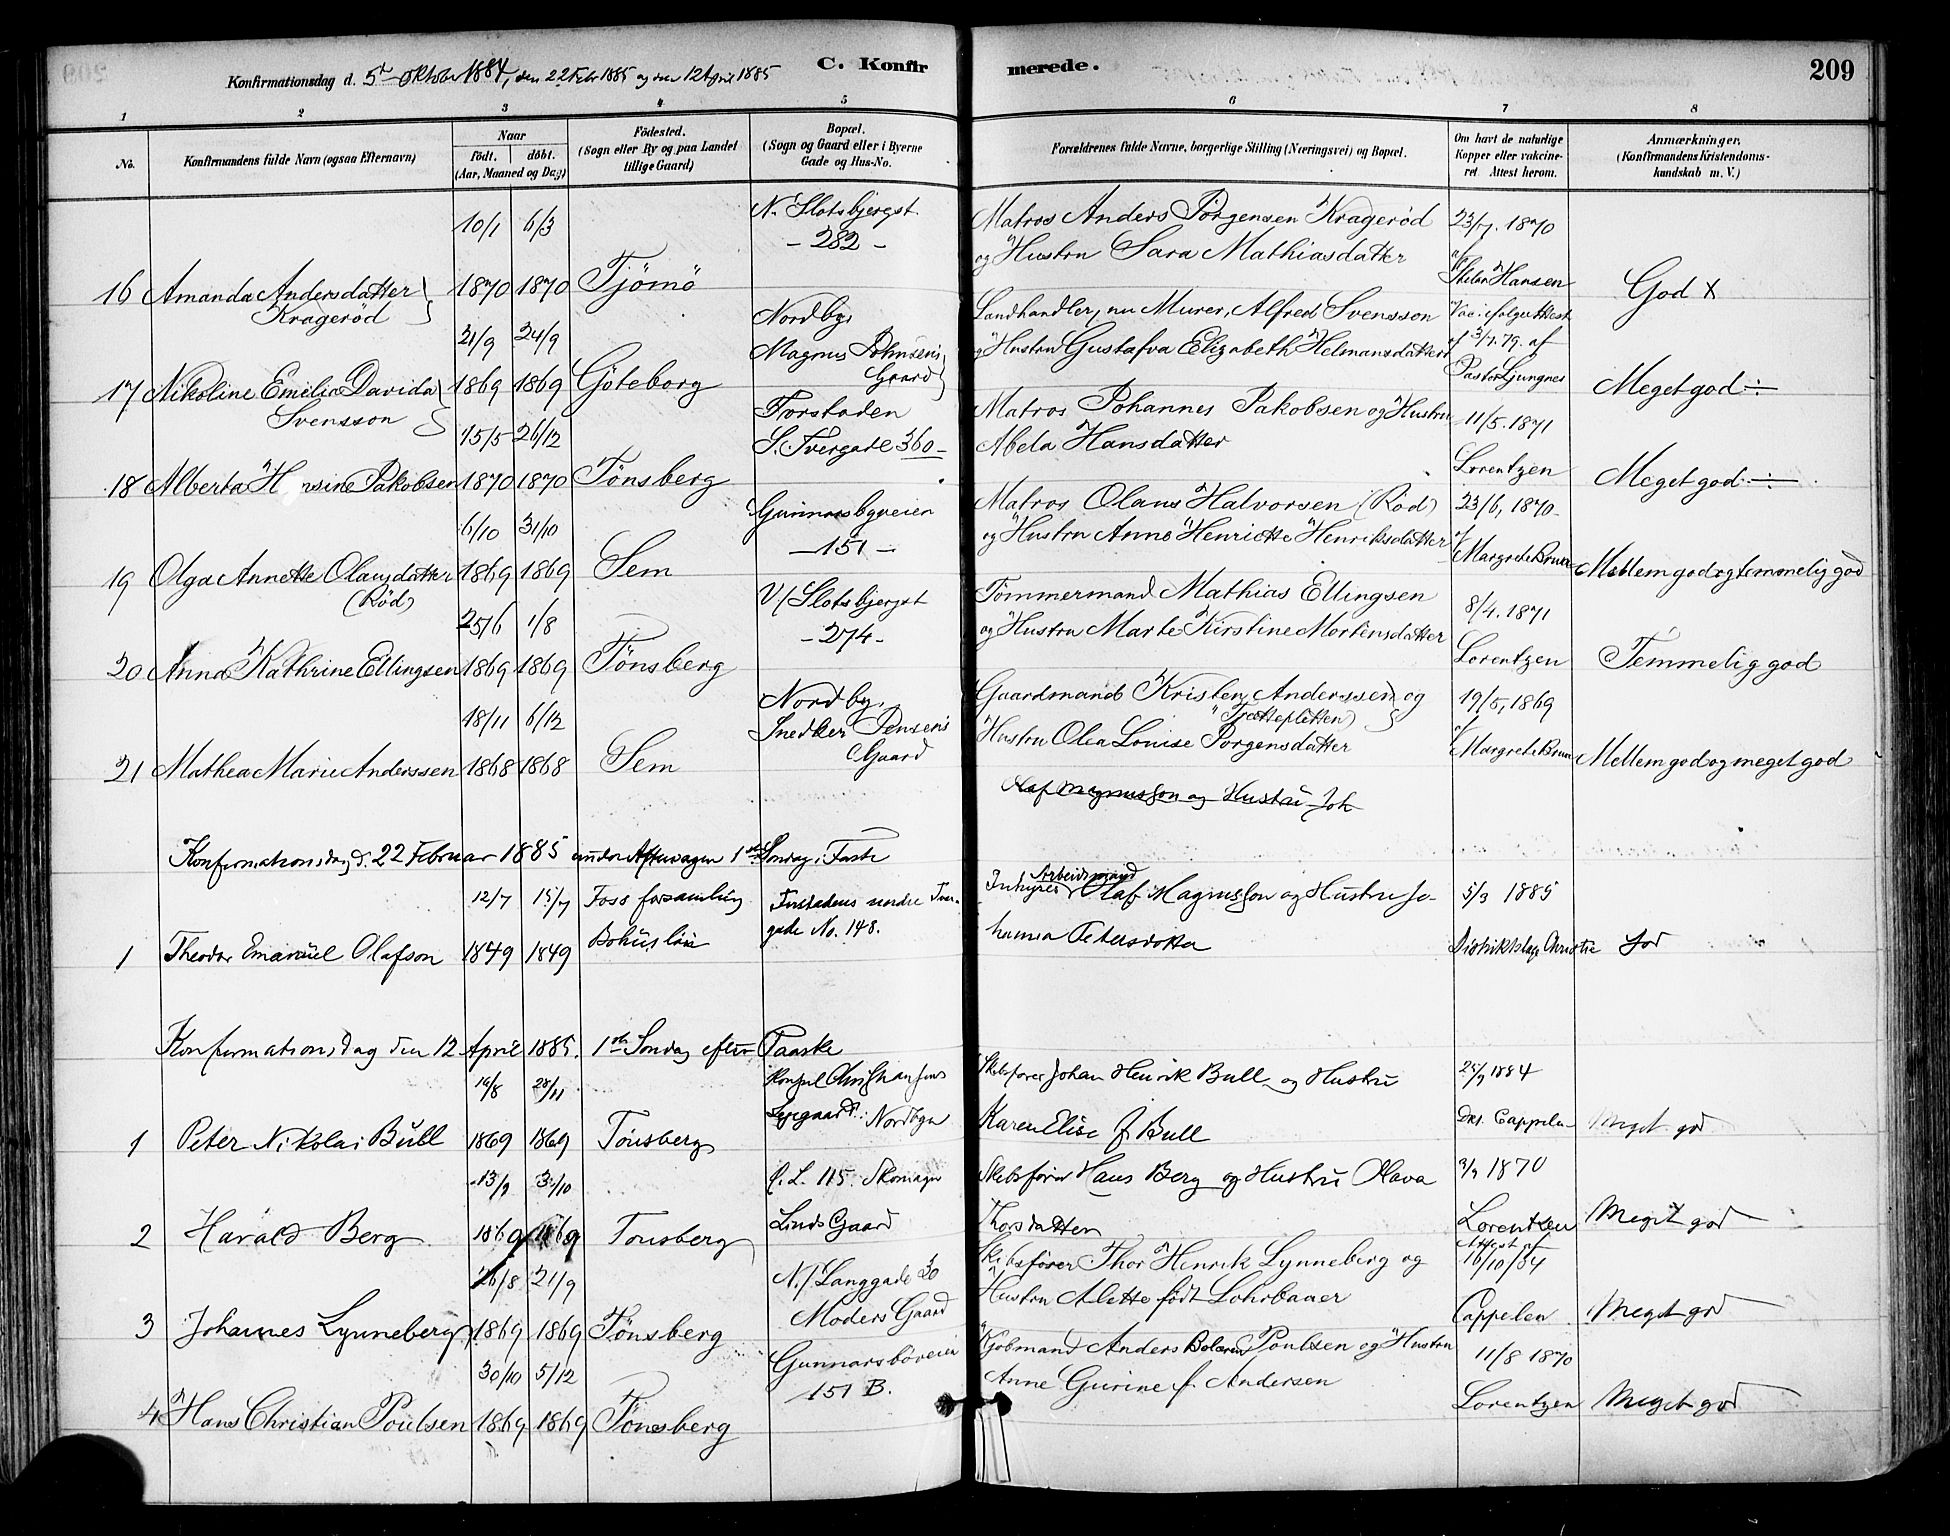 Konfirmationsdag d. 5te Oktober 1884, den 22 Febr 1885 og den 12 April 1885
C. Konfir
merede.
209
1 2 3 4 5 6 7 8
No.
Konfirmandens fulde Navn (ogsaa Efternavn)
Naar
födt. döbt.
(Aar, Maaned og Dag)
Födested.
(Sogn eller By og paa Landet
tillige Gaard)
Bopæl.
(Sogn og Gaard eller i Byerne
Gade og Hus-No.
Forældrenes fulde Navne, borgerlige Stilling (Næringsvei) og Bopæl.
Om havt de naturlige
Kopper eller vakcine-
ret. Attest herom.
Anmærkninger.
(Konfirmandens Kristendoms-
kundskab m. V.)
10/1 6/3 N. Slotsbjergst. Matros Anders Jörgensen Krageröd 23/7. 1870
- 282 - og Hustru Sara Mathiasdatter
16 Amanda Andersdatter 1870 1870 Tjömö Hansen God x
Krageröd Nordby, Landhandler, nu Murer, Alfred Svensson Vac. ifölge Attest
21/9 24/9 Magnus Johnsens og Hustru Gustafva Elizabeth Helmansdatter af 3/7. 79. af
17 Nikoline Emelia Davida 1869 1869 Göteborg Gaard Pastor Ljungnes Meget god
Svensson Forstaden Matros Johannes Jakobsen og Hustru 11/5. 1871
15/5 26/12 S. Tvergade 360 Abela Hansdatter
18 Alberta Hansine Jakobsen 1870 1870 Tönsberg Lorentzen Meget god
Gunnarsbyveien Matros Olaus Halvorsen (Röd) 23/6, 1870
6/10 31/10 - 151 - og Hustru Anne Henriette Henriksdatter
19 Olga Annette Olausdatter 1869 1869 Sem Margrete Bruun Mellem god og temmelig god
(Röd) V/Slotsbjergst Tömmermand Mathias Ellingsen 8/4. 1871
25/6 1/8 - 274 - og Hustru Marte Kirstine Mortensdatter
20 Anna Kathrine Ellingsen 1869 1869 Tönsberg Lorentzen Temmelig god
Nordby, Gaardmand Kristen Anderssen og 19/5, 1869
18/11 6/12 Snedker Jensens Hustru Olea Louise Jörgensdatter
21 Mathea Marie Anderssen 1868 1868 Sem Gaard Margrete Bruun Mellem god og meget god
Olaf Magnusson og Hustru Joh
Konfirmationsdag d. 22 Februar 1885 under Aftensangen 1ste Söndag i Faste
12/7 15/7 Foss forsamling Forstadens nordre Tver- Inhyrer, Arbeidsmand Olaf Magnusson og Hustru Jo- 5/3 1885
1 Theodor Emanuel Olafson 1849 1849 Bohuslän gade No. 148. hanna Petersdotter Distriktslæge Christie God
Konfirmationsdag den 12 April 1885. 1ste Söndag efter Paaske
19/8 28/11 Konsul Skibsförer Johan Henrik Bull og Hustru 25/9 1884
1 Peter Nikolai Bull 1869 1869 Tönsberg Nordbyen Karen Elise f Bull Dr. Cappelen Meget god
13/9 31/10 C. L. 115. Skomager Skibsförer Hans Berg og Hustru Olava 9/9 1870
2 Harald Berg 1869 1869 Tonsberg Linds Gaard Thorsdatter Lorentzen Meget god
26/8 21/9 N./Langgade 30 Skibsförer Thor Henrik Lynneberg og Attest af 16/10/84
3 Johannes Lynneberg 1869 1869 Tönsberg Moders Gaard Hustru Alette födt Lohrbauer Cappelen Meget god
30/10 5/12 Gunnarsböveien Kjöbmand Anders Bolæren Poulsen og Hustru 11/8 1870
4 Hans Christian Poulsen 1869 1869 Tönsberg 151 B. Anne Gurine f. Andersen Lorentzen Meget god